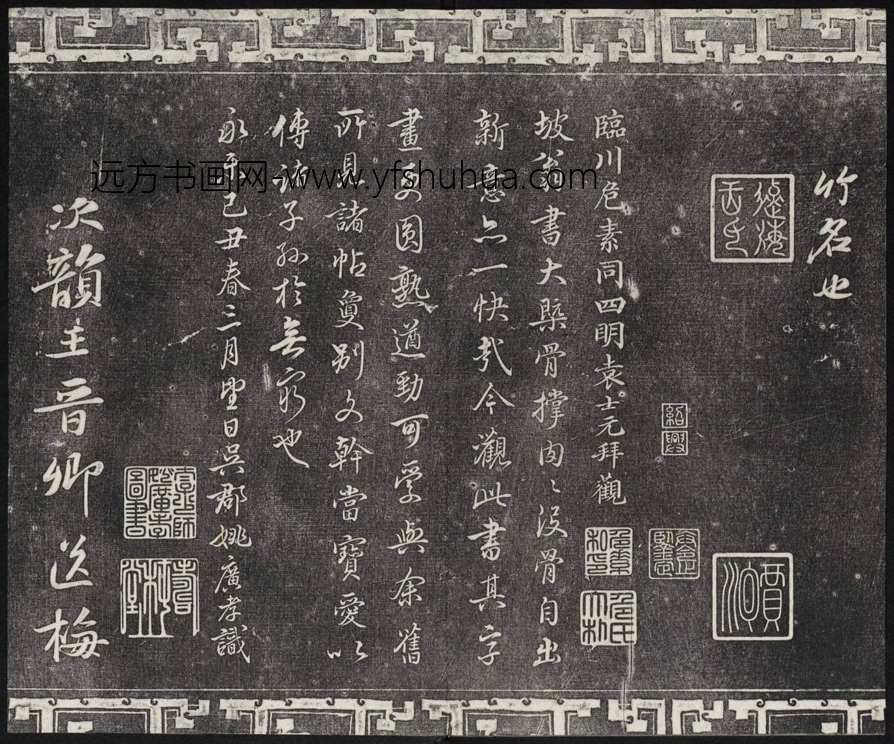 竹名也
紹興
賈
臨川危素同四明袁士元拜觀
危素
危氏
坡翁書大槩骨撐肉肉沒骨自出
新意亦一快哉今觀此書其字
畫秀圓熟遒勁可愛與余舊
所見諸帖敻別文幹當寶愛以
傳諸子孫於無窮也
永樂己丑春三月望日吳郡姚廣孝識
圖書
次韻王晉卿送梅
远方书画网-www.yfshuhua.com